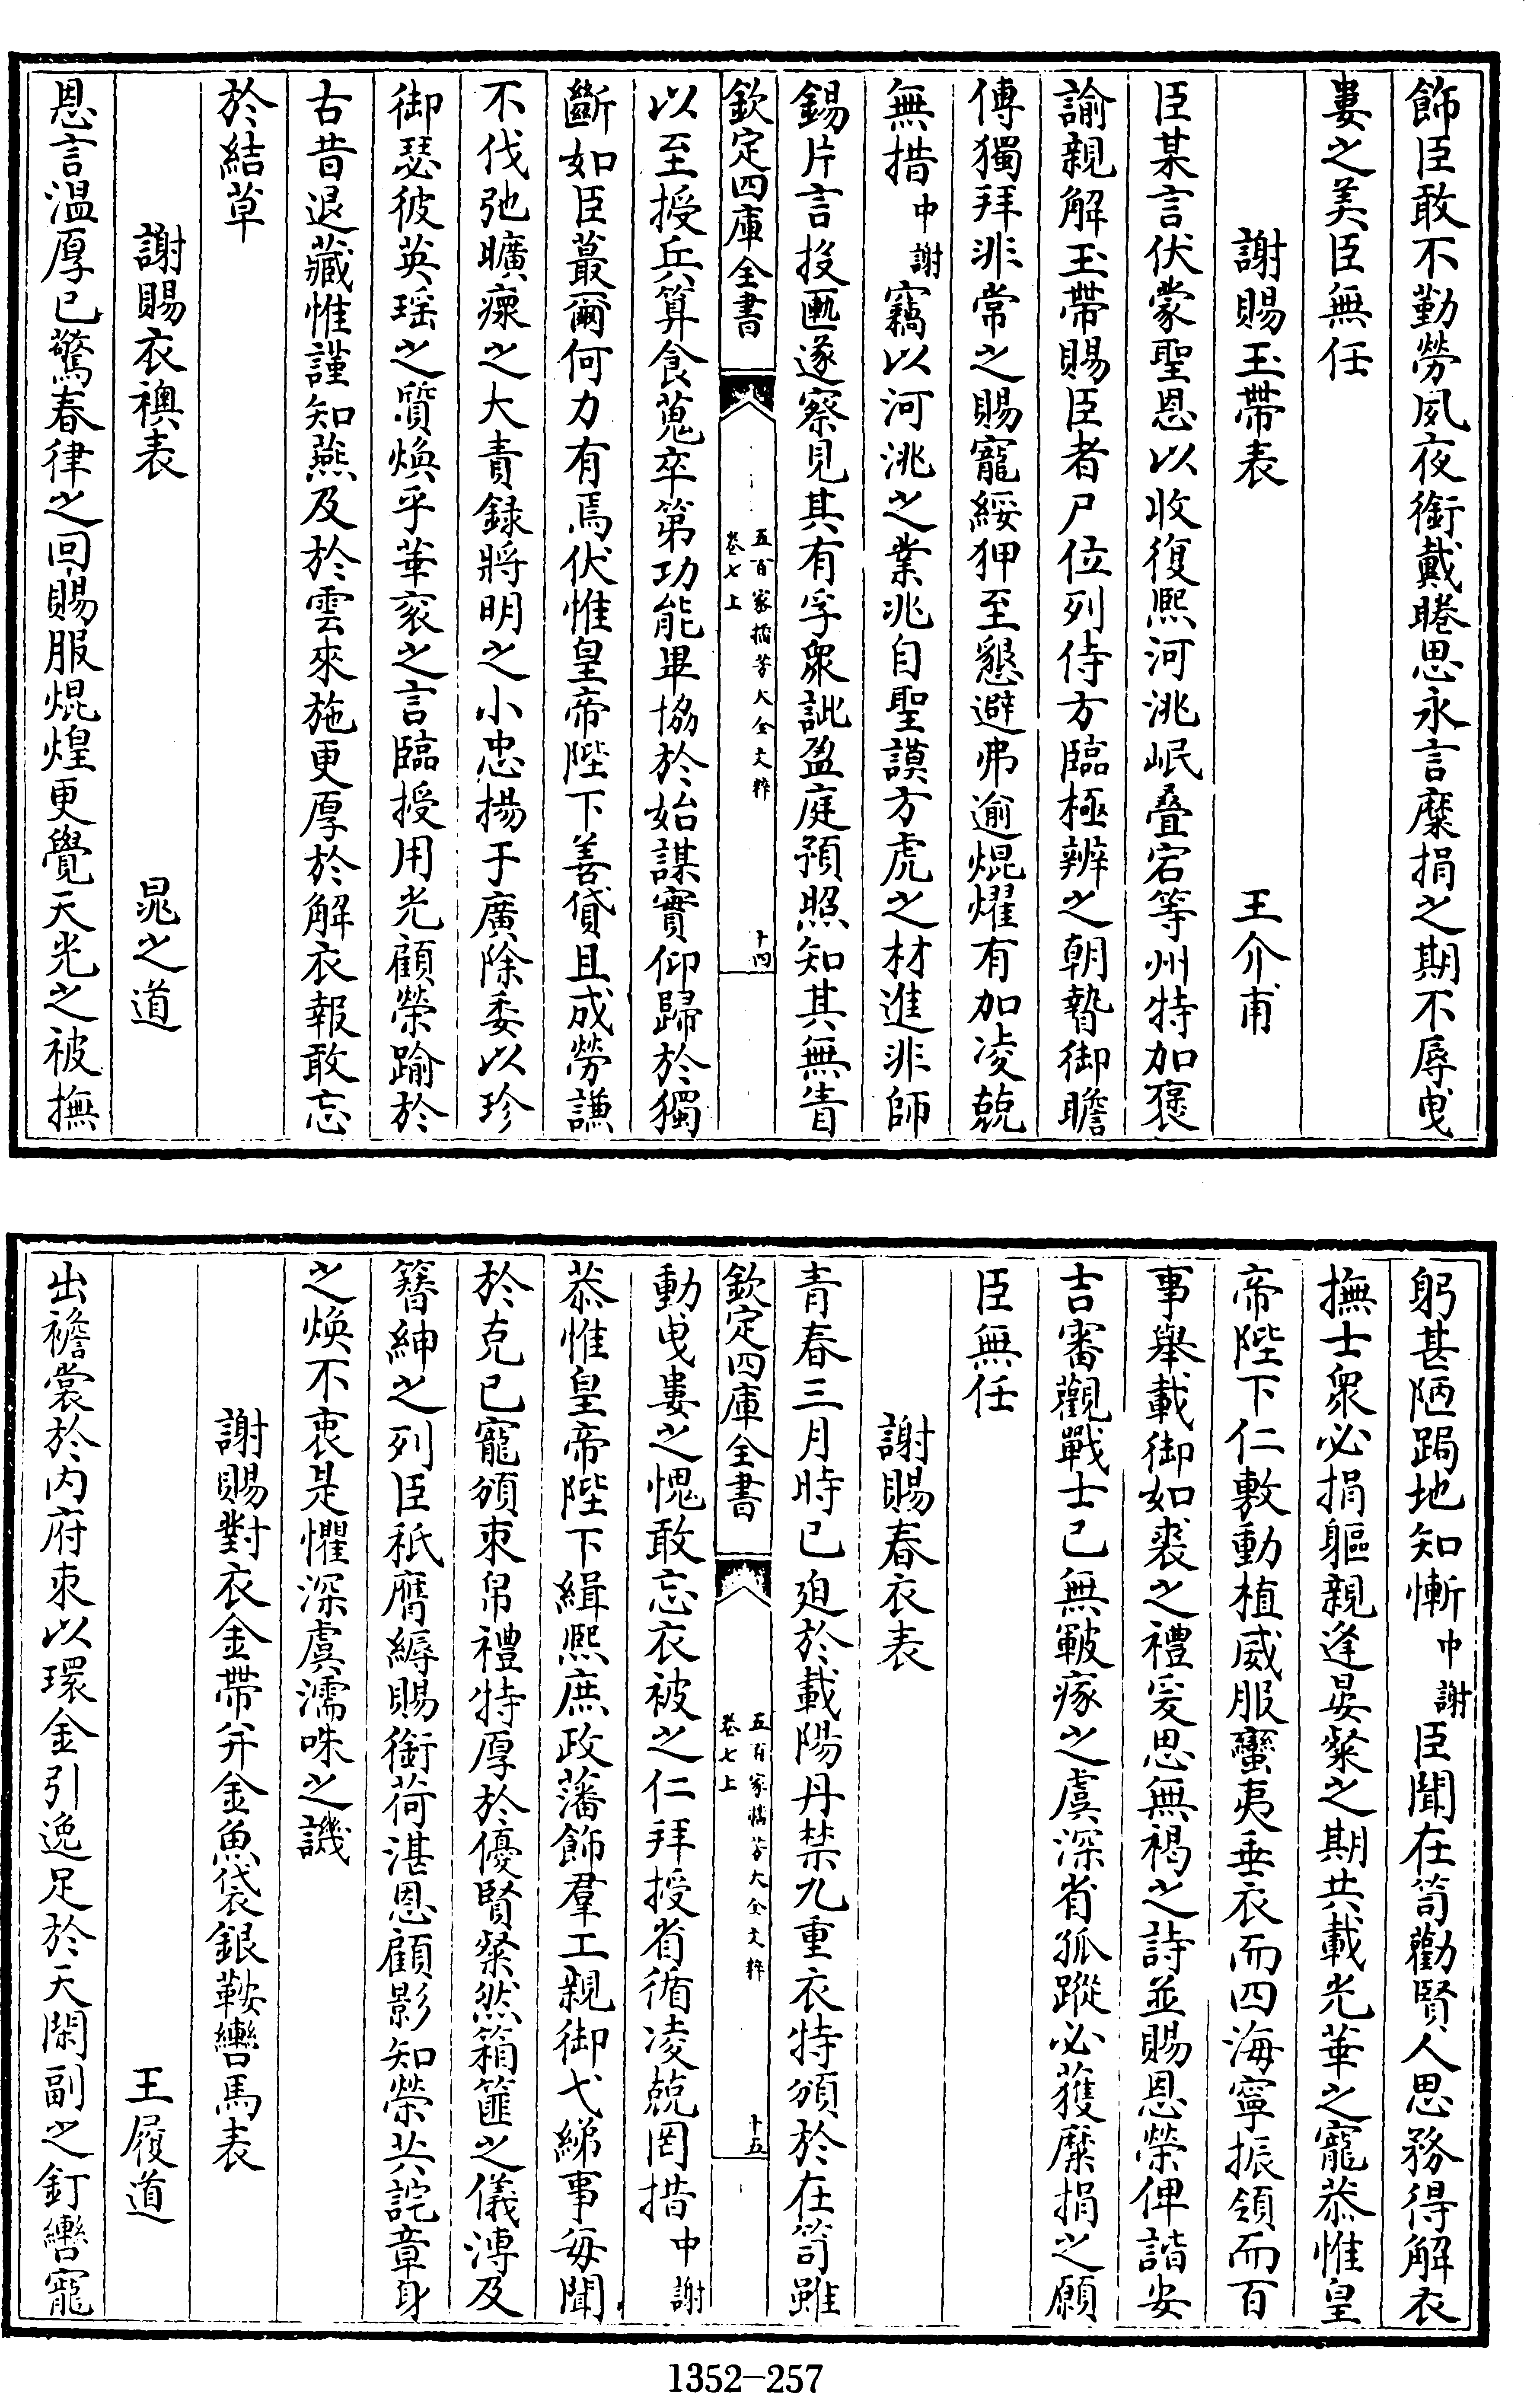 飾臣敢不勤勞夙夜銜戴睠思永言糜捐之期不辱曳
婁之美臣無任
謝賜玉帶表 王介甫
臣某言伏蒙聖恩以收復熙河洮岷疊宕等州特加褒
諭親解玉帶賜臣者尸位列侍方臨極辨之朝贄御瞻
傳獨拜非常之賜寵綏狎至懇避弗逾焜燿有加凌兢
無措中謝竊以河洮之業兆自聖謨方虎之材進非師
錫片言投匭遂察見其有孚衆訿盈庭預照知其無眚
欽定四庫全書 五百家播芳大全文粹 卷七上 十四
以至授兵算食蒐卒第功能畢協於始謀實仰歸於獨
斷如臣蕞爾何力有焉伏惟皇帝陛下善貸且成勞謙
不伐弛曠瘝之大責錄將明之小忠揚于廣除委以珍
御瑟彼英瑤之質煥乎華袞之言臨授用光顧榮踰於
古昔退藏惟謹知燕及於雲來施更厚於解衣報敢忘
於結草
謝賜衣襖表 晁之道
恩言温厚已驚春律之回賜服焜煌更覺天光之被撫
躬甚陋跼地知慚中謝臣聞在笥勸賢人思務得解衣
撫士衆必捐軀親逢晏粲之期共載光華之寵恭惟皇
帝陛下仁敷動植威服蠻夷垂衣而四海寧振領而百
事舉載御如裘之禮爰思無褐之詩並賜恩榮俾諧安
吉審觀戰士已無皸瘃之虞深省孤蹤必獲糜捐之願
臣無任
謝賜春衣表
青春三月時已廹於載陽丹禁九重衣特頒於在笥雖
欽定四庫全書 五百家播芳大全文粹 卷七上 十五
動曳婁之愧敢忘衣被之仁拜授省循凌兢罔措中謝
恭惟皇帝陛下緝熙庶政藩飾羣工親御弋綈事每聞
於克已寵頒束帛禮特厚於優賢粲然箱篚之儀溥及
簪紳之列臣秖膺縟賜銜荷湛恩顧影知榮共詫章身
之煥不衷是懼深虞濡咮之譏
謝賜對衣金帶并金魚袋銀鞍轡馬表
王履道
出襜裳於内府束以環金引逸足於天閑副之釘轡寵
1352-257